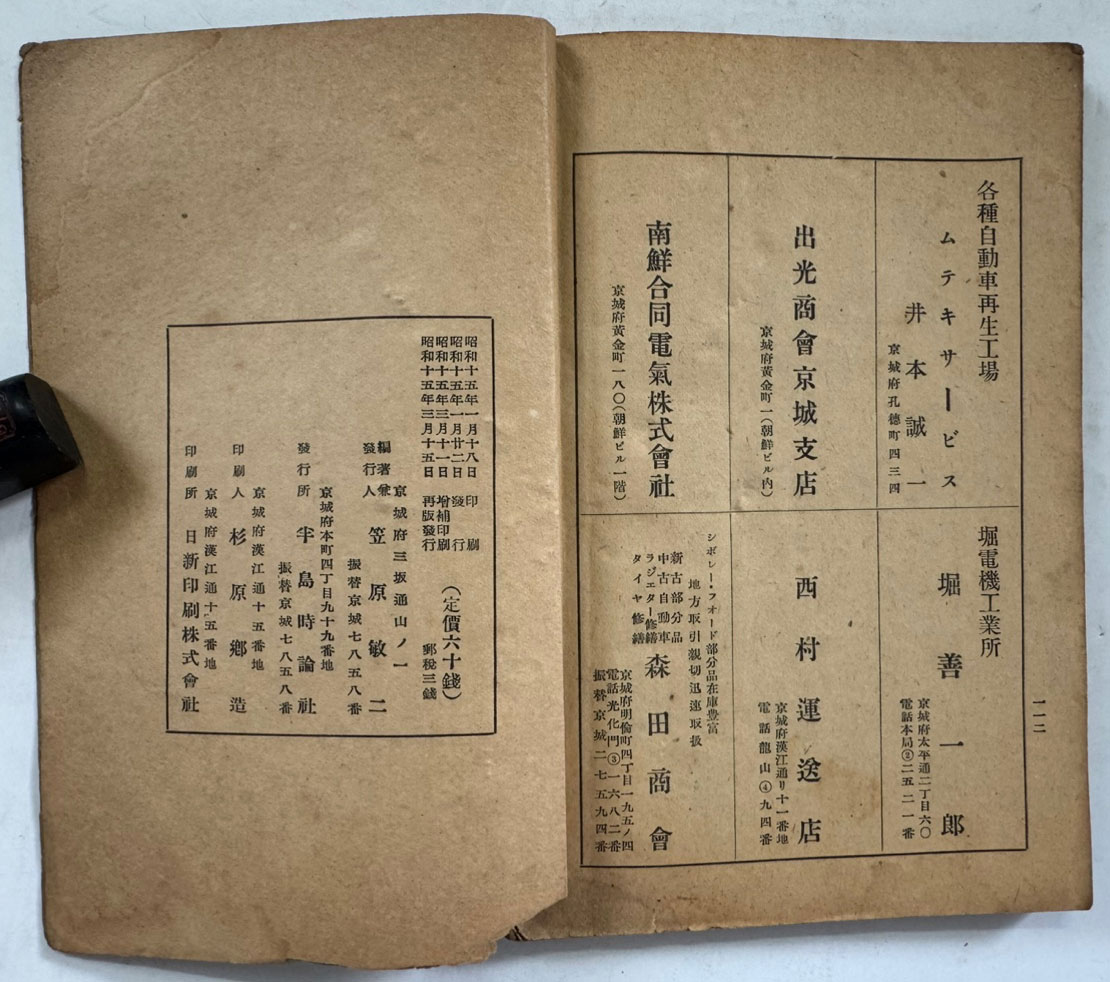 各種自動車再生工場
ムテキサービス
井本誠一
京城府孔德町四三四
堀電機工業所
堀善一郎
京城府太平通二丁目六〇
電話本局②二五二一番
出光商會京城支店
京城府黃金町一(朝鮮ビル內)
西村運送店
京城府漢江通り十一番地
電話龍山④九四番
南鮮合同電氣株式會社
京城府黃金町一八〇(朝鮮ビル一階)
シボレー・フオード部分品在庫豊富
地方取引親切迅速取扱
新古部分品
中古自動車
ラジエター修繕
タイヤ修繕
森田商會
京城府明倫町四丁目一九五ノ四
電話光化門③一六八二番
振替京城二七五九四番
一一二
昭和十五年一月十八日 印刷
昭和十五年一月廿二日 發行
昭和十五年三月十一日 增補印刷
昭和十五年三月十五日 再版發行
(定價六十錢)
郵稅三錢
京城府三坂通山ノ一
編著兼
發行人 笠原敏二
振替京城七八五八番
京城府本町四丁目九十九番地
發行所 半島時論社
振替京城七八五八番
京城府漢江通十五番地
印刷人 杉原鄕造
京城府漢江通十五番地
印刷所 日新印刷株式會社